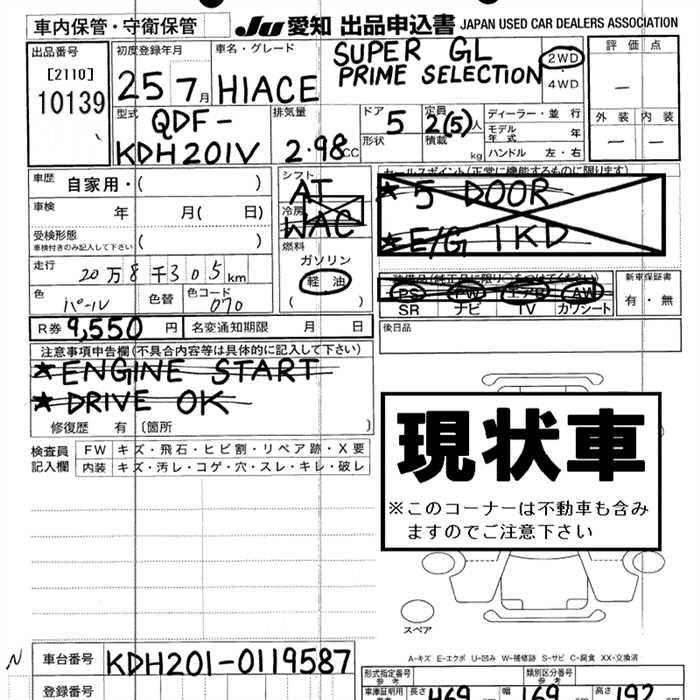 車内保管・守衛保管
JU 愛知 出品申込書 JAPAN USED CAR DEALERS ASSOCIATION
出品番号
[2110]
10139
初度登録年月
25 7月
車名・グレード
HIACE
SUPER GL
PRIME SELECTION
2WD
・
4WD
評価点
—
外装 内装
— —
型式
QDF-
KDH201V
排気量
2.98CC
ドア 5
形状
定員 2(5)人
積載 kg
ディーラー・並行
モデル年式 年
ハンドル 左・右
車歴 自家用・( )
車検 年 月( 日)
受検形態
車検付きのみ記入して下さい ( )
シフト
AT
冷房
WAC
燃料
ガソリン
軽油
( )
走行
20万8千305km
色
パール
色替
色コード
070
R券 9,550円 名変通知期限 月 日
セールスポイント(正常に機能するものに限ります)
★ 5 DOOR
★ E/G 1KD
PS PW エアB AW
SR ナビ TV カワシート
新車保証書
有・無
後日品
注意事項申告欄(不具合内容等は具体的に記入して下さい)
★ ENGINE START
★ DRIVE OK
修復歴 有 〔箇所 〕
検査員
記入欄
FW キズ・飛石・ヒビ割・リペア跡・X要
内装 キズ・汚レ・コゲ・穴・スレ・キレ・破レ
現状車
※このコーナーは不動車も含み
ますのでご注意下さい
スペア
A-キズ E-エクボ U-凹み W-補修跡 S-サビ C-腐食 XX-交換済
N
車台番号 KDH201-0119587
登録番号
型式指定番号
参考
類別区分番号
参考
車庫証明用
長さ 469
幅 169
高さ 192